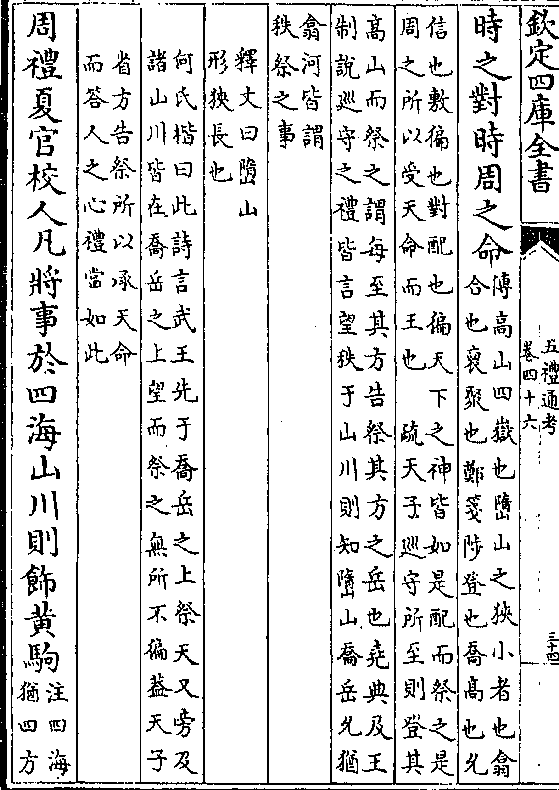 欽定四庫全書
五禮通考
卷四十六
三十四
時之對時周之命
傳高山四嶽也嶞山之狹小者也翕
合也裒聚也鄭箋陟登也喬高也允
信也敷徧也對配也徧天下之神皆如是配而祭之是
周之所以受天命而王也 疏天子巡守所至則登其
高山而祭之謂每至其方告祭其方之岳也堯典及王
制說巡守之禮皆言望秩于山川則知嶞山喬岳允猶
翕河皆謂
秩祭之事
釋文曰嶞山
形狹長也
何氏楷曰此詩言武王先于喬岳之上祭天又旁及
諸山川皆在喬岳之上望而祭之無所不徧葢天子
省方告祭所以承天命
而答人之心禮當如此
周禮夏官校人凡將事於四海山川則飾黄駒
注四海
猶四方